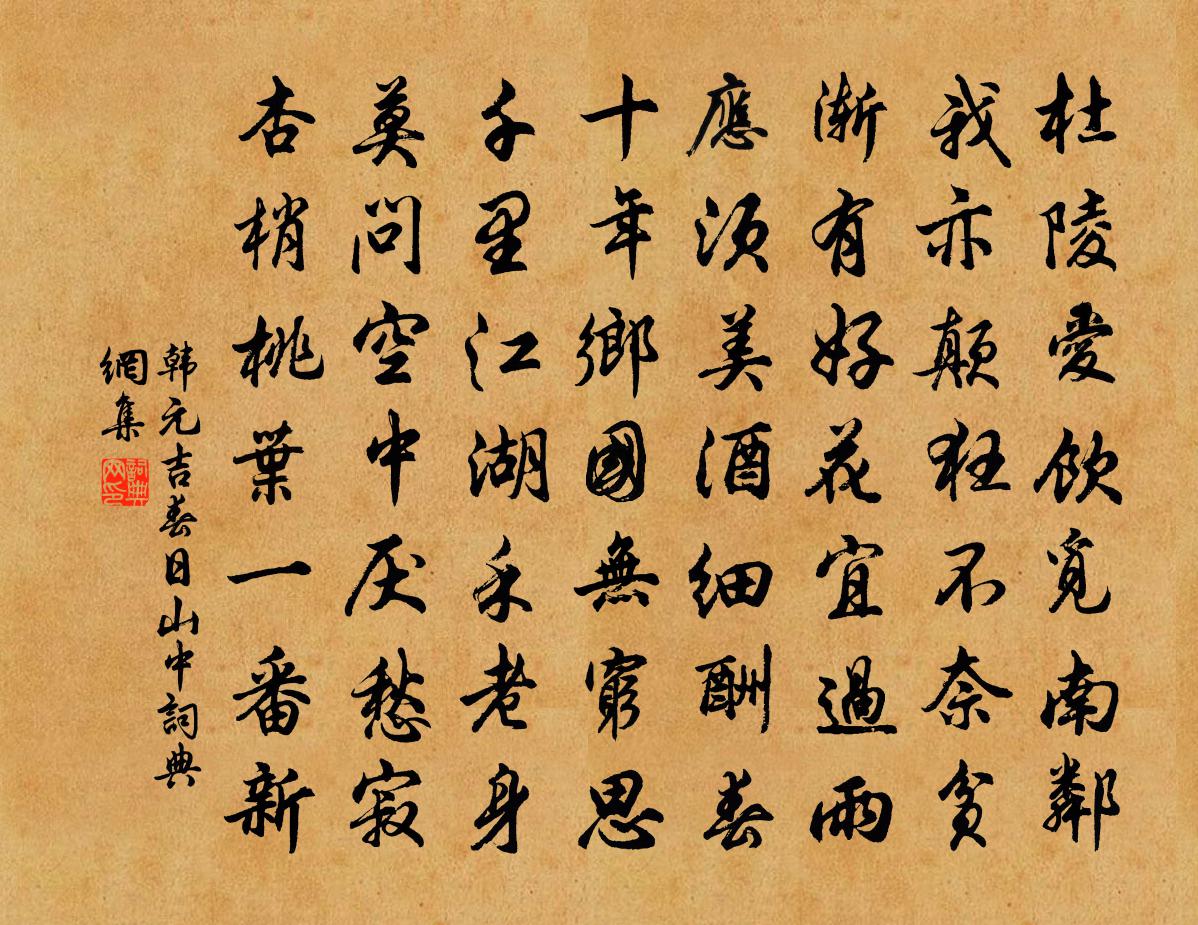 杜陵愛飲覓南鄰
我亦顛狂不奈貧
漸有好花宜過雨
應須美酒細酬春
十年鄉國無窮思
千里江湖未老身
莫問空中厌愁寂
杏梢桃葉一番新
韩元吉春日山中詞典
網集
詞典